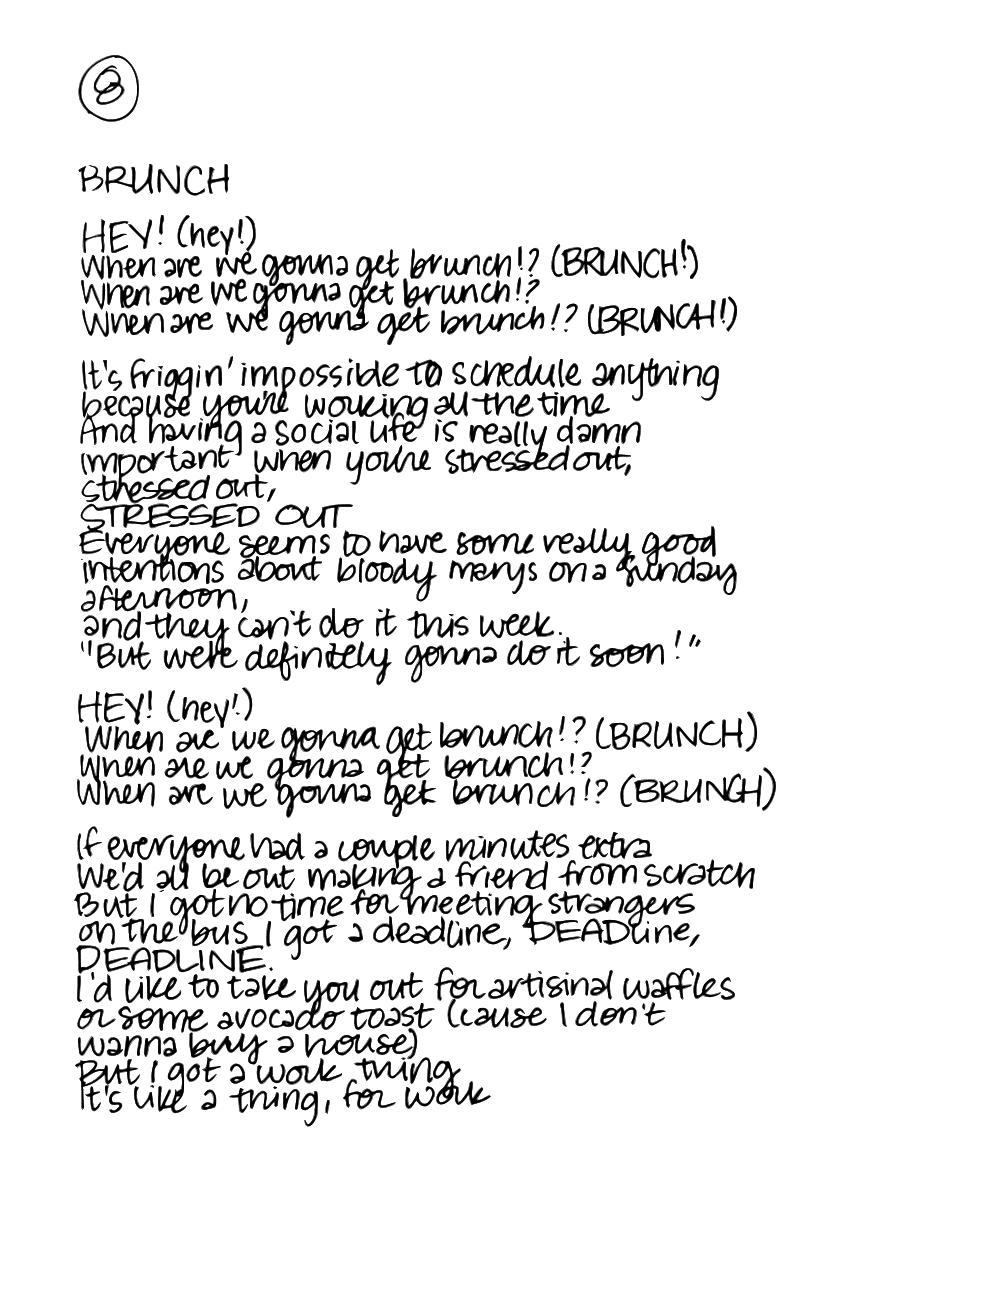 8
BRUNCH
HEY! (hey!)
When are we gonna get brunch!? (BRUNCH!)
When are we gonna get brunch!?
When are we gonna get brunch!? (BRUNCH!)
It's friggin' impossible to schedule anything
because you're working all the time
And having a social life is really damn
important when you're stressed out,
stressed out,
STRESSED OUT
Everyone seems to have some really good
intentions about bloody marys on a Sunday
afternoon,
and they can't do it this week.
"But we're definitely gonna do it soon!"
HEY! (hey!)
When are we gonna get brunch!? (BRUNCH)
When are we gonna get brunch!?
When are we gonna get brunch!? (BRUNCH)
If everyone had a couple minutes extra
We'd all be out making a friend from scratch
But I got no time for meeting strangers
on the bus I got a deadline, DEADline,
DEADLINE.
I'd like to take you out for artisinal waffles
or some avocado toast (cause I don't
wanna buy a house)
But I got a work thing
It's like a thing, for work